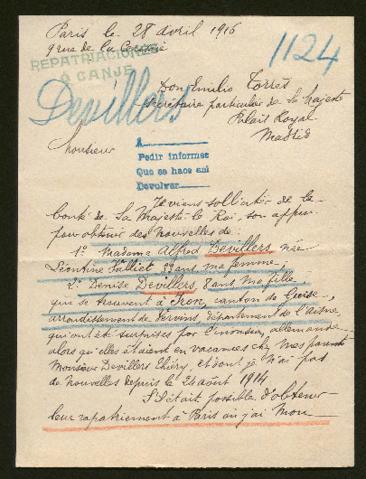 Paris le 28 avril 1916
9 rue de la
REPATRIACIONES
O CANJE
1124
Devillers
Don Emilio Torrès
Secrétaire particulier de Sa Majesté
Palais Royal
Madrid
Monsieur
A
Pedir informes
Que se hace así
Devolver
Je viens solliciter de la
bonté de Sa Majesté le Roi, son appui
pour obtenir des nouvelles de:
1º Madame Alfred Devillers née
Léontine 29 ans ma femme;
2º Denise Devillers, 8 ans ma fille,
que se trouvent à Iron, canton de Guise,
arrondissement de Vervins département de l'Aisne,
qui ont été surprises par l'invasion allemande
alors qu'elles étaient en vacances chez mes parents
Monsieur Devillers Théry, et dont je n'ai pas
de nouvelles depuis le 24 août 1914.
S'il était possible d'obtenir
leur rapatriement à Paris où j'ai mon